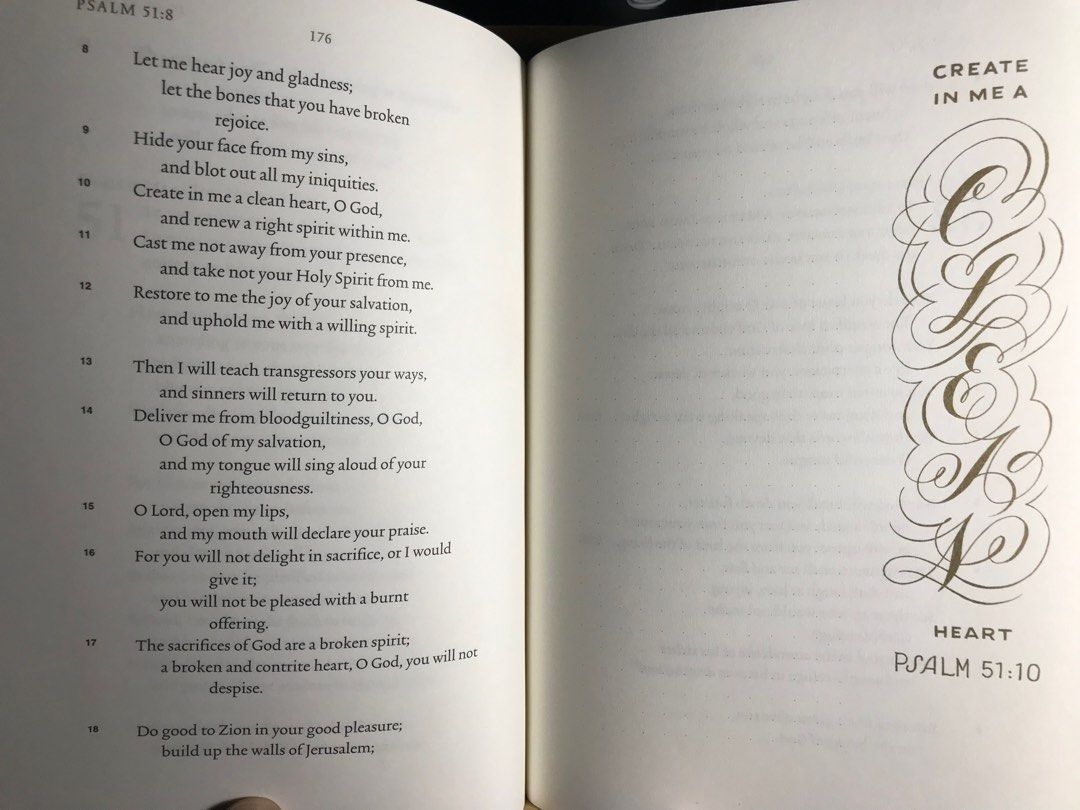 PSALM 51:8
176
8 Let me hear joy and gladness;
let the bones that you have broken
rejoice.
9 Hide your face from my sins,
and blot out all my iniquities.
10 Create in me a clean heart, O God,
and renew a right spirit within me.
11 Cast me not away from your presence,
and take not your Holy Spirit from me.
12 Restore to me the joy of your salvation,
and uphold me with a willing spirit.
13 Then I will teach transgressors your ways,
and sinners will return to you.
14 Deliver me from bloodguiltiness, O God,
O God of my salvation,
and my tongue will sing aloud of your
righteousness.
15 O Lord, open my lips,
and my mouth will declare your praise.
16 For you will not delight in sacrifice, or I would
give it;
you will not be pleased with a burnt
offering.
17 The sacrifices of God are a broken spirit;
a broken and contrite heart, O God, you will not
despise.
18 Do good to Zion in your good pleasure;
build up the walls of Jerusalem;
CREATE
IN ME A
CLEAN
HEART
PSALM 51:10